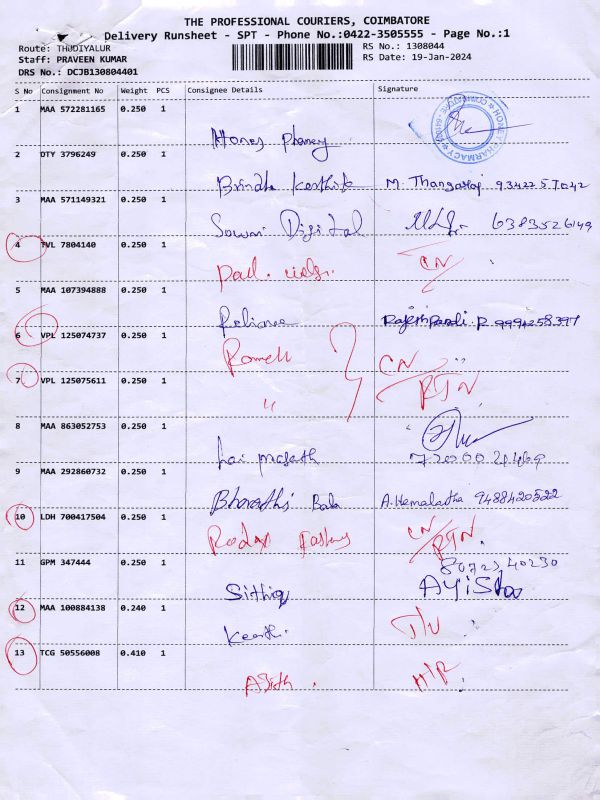 THE PROFESSIONAL COURIERS, COIMBATORE
Delivery Runsheet - SPT - Phone No.:0422-3505555 - Page No.:1
Route: THUDIYALUR RS No.: 1308044
Staff: PRAVEEN KUMAR RS Date: 19-Jan-2024
DRS No.: DCJB130804401
S No Consignment No Weight PCS Consignee Details Signature
1 MAA 572281165 0.250 1
HONEY PHARMACY
2 DTY 3796249 0.250 1
Brindha Karthik M. Thangaraj
3 MAA 571149321 0.250 1
Digital 6383526149
4 TVL 7804140 0.250 1
CN
5 MAA 107394888 0.250 1
Reliance
6 VPL 125074737 0.250 1
CN
7 VPL 125075611 0.250 1
" RTN
8 MAA 863052753 0.250 1
9 MAA 292860732 0.250 1
Bharathi Bala A. Hemalatha 9488420522
10 LDH 700417504 0.250 1
CN
RTN
11 GPM 347444 0.250 1
8072540230
Ayisha
12 MAA 100884138 0.240 1
13 TCG 50556008 0.410 1